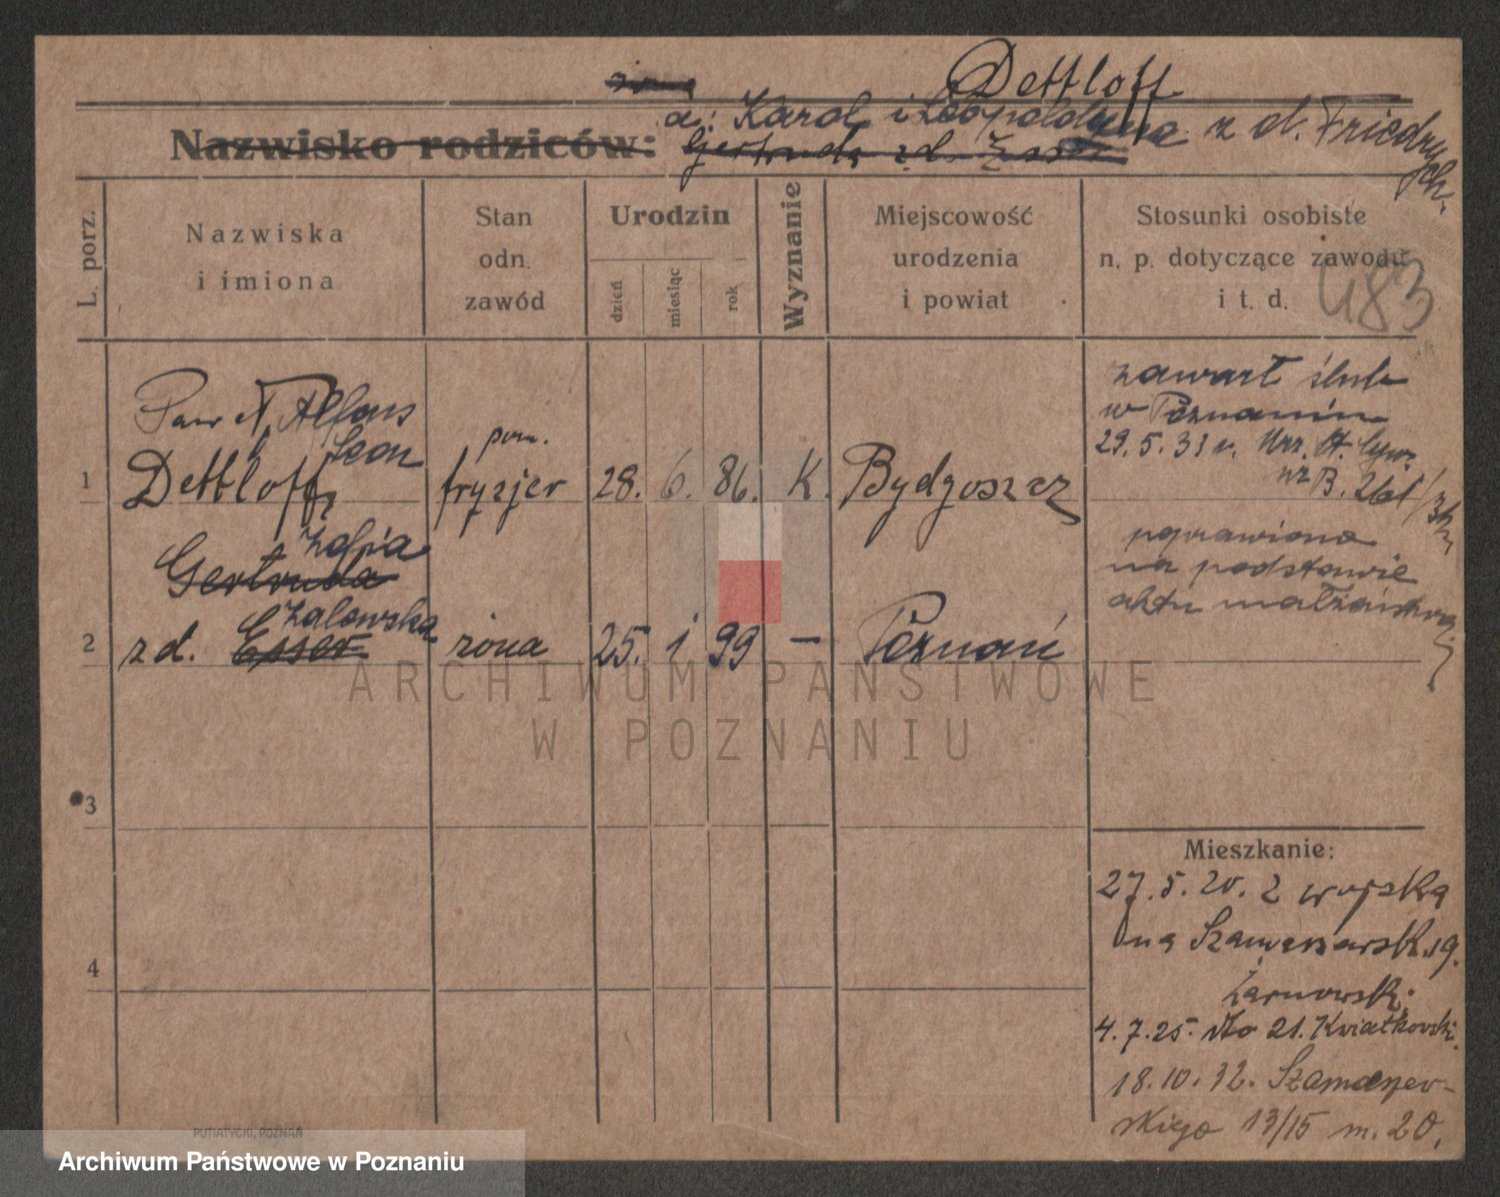 żona
Dettloff
a: Karol i Leopoldyna z d. Friedrych.
Nazwisko rodziców: Gertruda z d.
L. porz.
Nazwiska
i imiona
Stan
odn.
zawód
Urodzin
dzień
miesiąc
rok
Wyznanie
Miejscowość
urodzenia
i powiat
Stosunki osobiste
n. p. dotyczące zawodu
i t. d.
483
Paweł Alfons
Leon
1 Dettloff
pom.
fryzjer 28. 6. 86. K. Bydgoszcz
zawarł ślub
w Poznaniu
29.5.33 r. Urz. St. Cyw.
nr B.
poprawiono
na podstawie
aktu małżeństwa
Zofia
Gertruda
Zalewska
2 z d. Esser żona 25. 1 99 — Poznań
3
4
Mieszkanie:
27.5.20. z wojska
na 19.
Żarnowski.
4.7.25. 21. Kwiatkowski.
18.10.32. Szamarzew-
skiego 13/15 m. 20.
PUTIATYCKI, POZNAŃ
ARCHIWUM PAŃSTWOWE
W POZNANIU
Archiwum Państwowe w Poznaniu